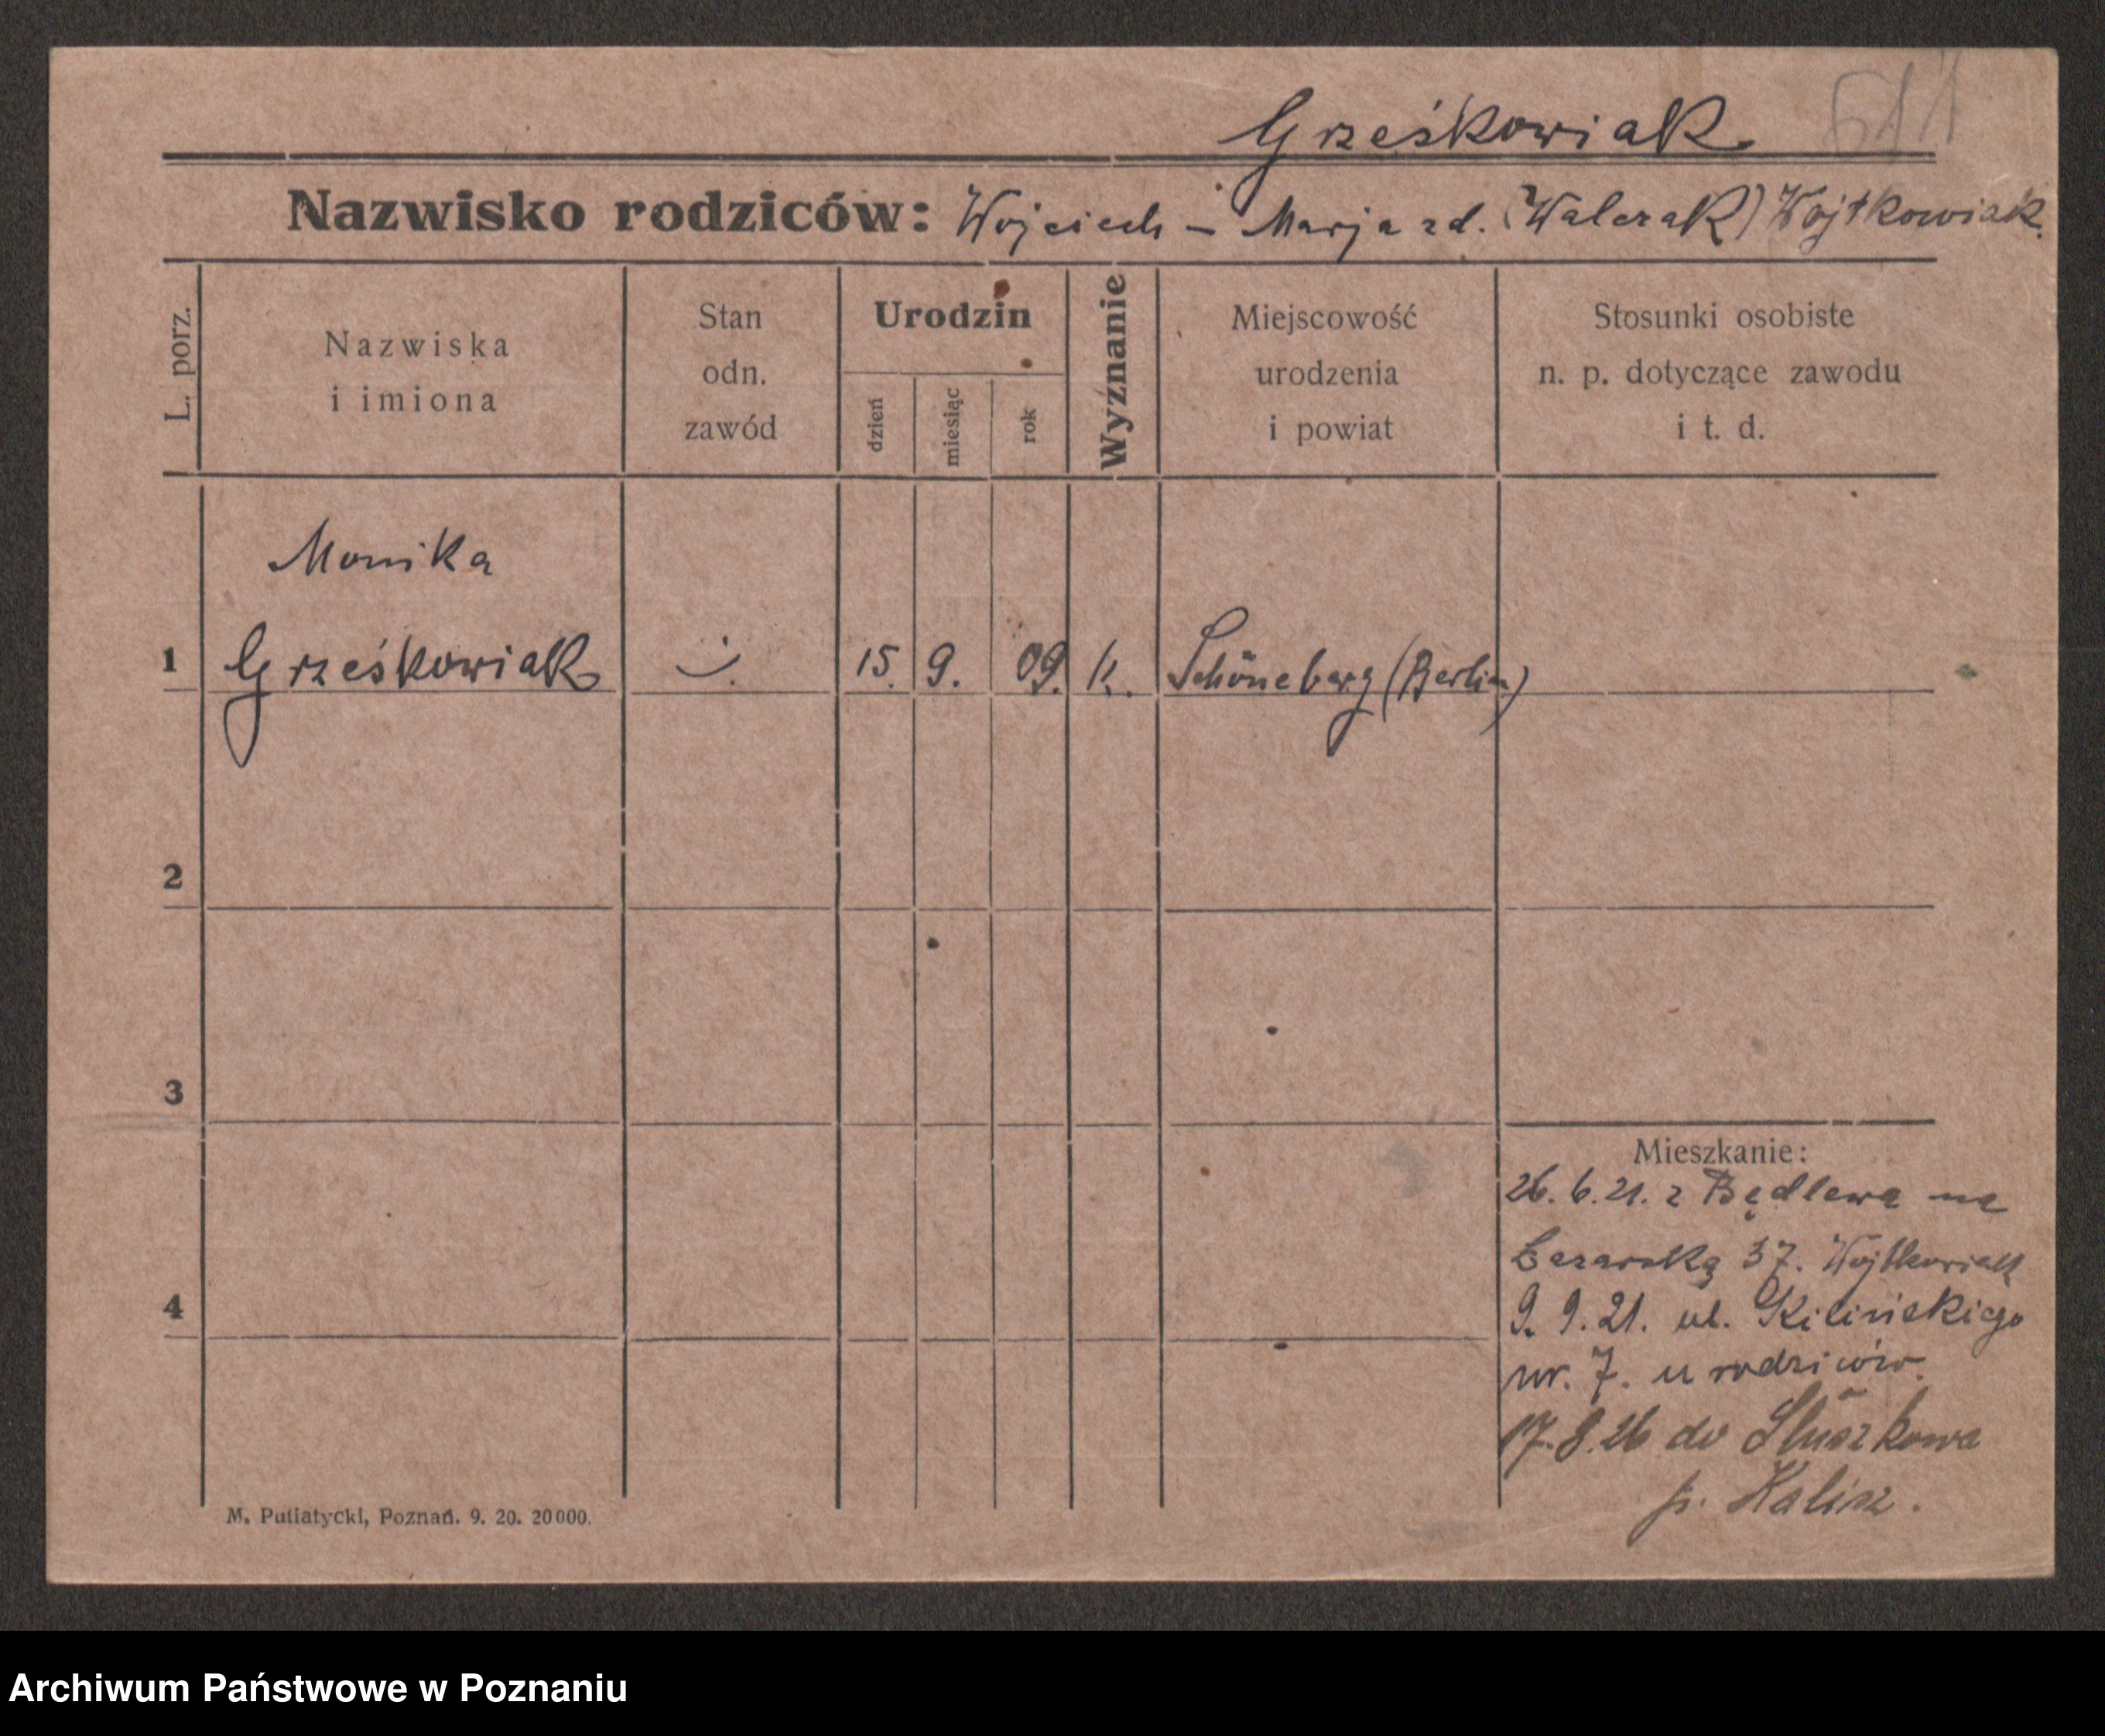 Grześkowiak
Nazwisko rodziców: Wojciech – Marja zd. (Walczak) Wojtkowiak.
L. porz.
Nazwiska
i imiona
Stan
odn.
zawód
Urodzin
dzień
miesiąc
rok
Wyznanie
Miejscowość
urodzenia
i powiat
Stosunki osobiste
n. p. dotyczące zawodu
i t. d.
Monika
1 Grześkowiak 15. 9. 09. k. Schöneberg (Berlin)
2
3
Mieszkanie:
26. 6. 21. z Będlewa na
Łazarską 37. Wojtkowiak
9. 9. 21. ul. Kilińskiego
4
nr. 7. u rodziców.
17. 8. 26 do Słuszkowa
p. Kalisz.
M. Putiatycki, Poznań. 9. 20. 20000.
Archiwum Państwowe w Poznaniu